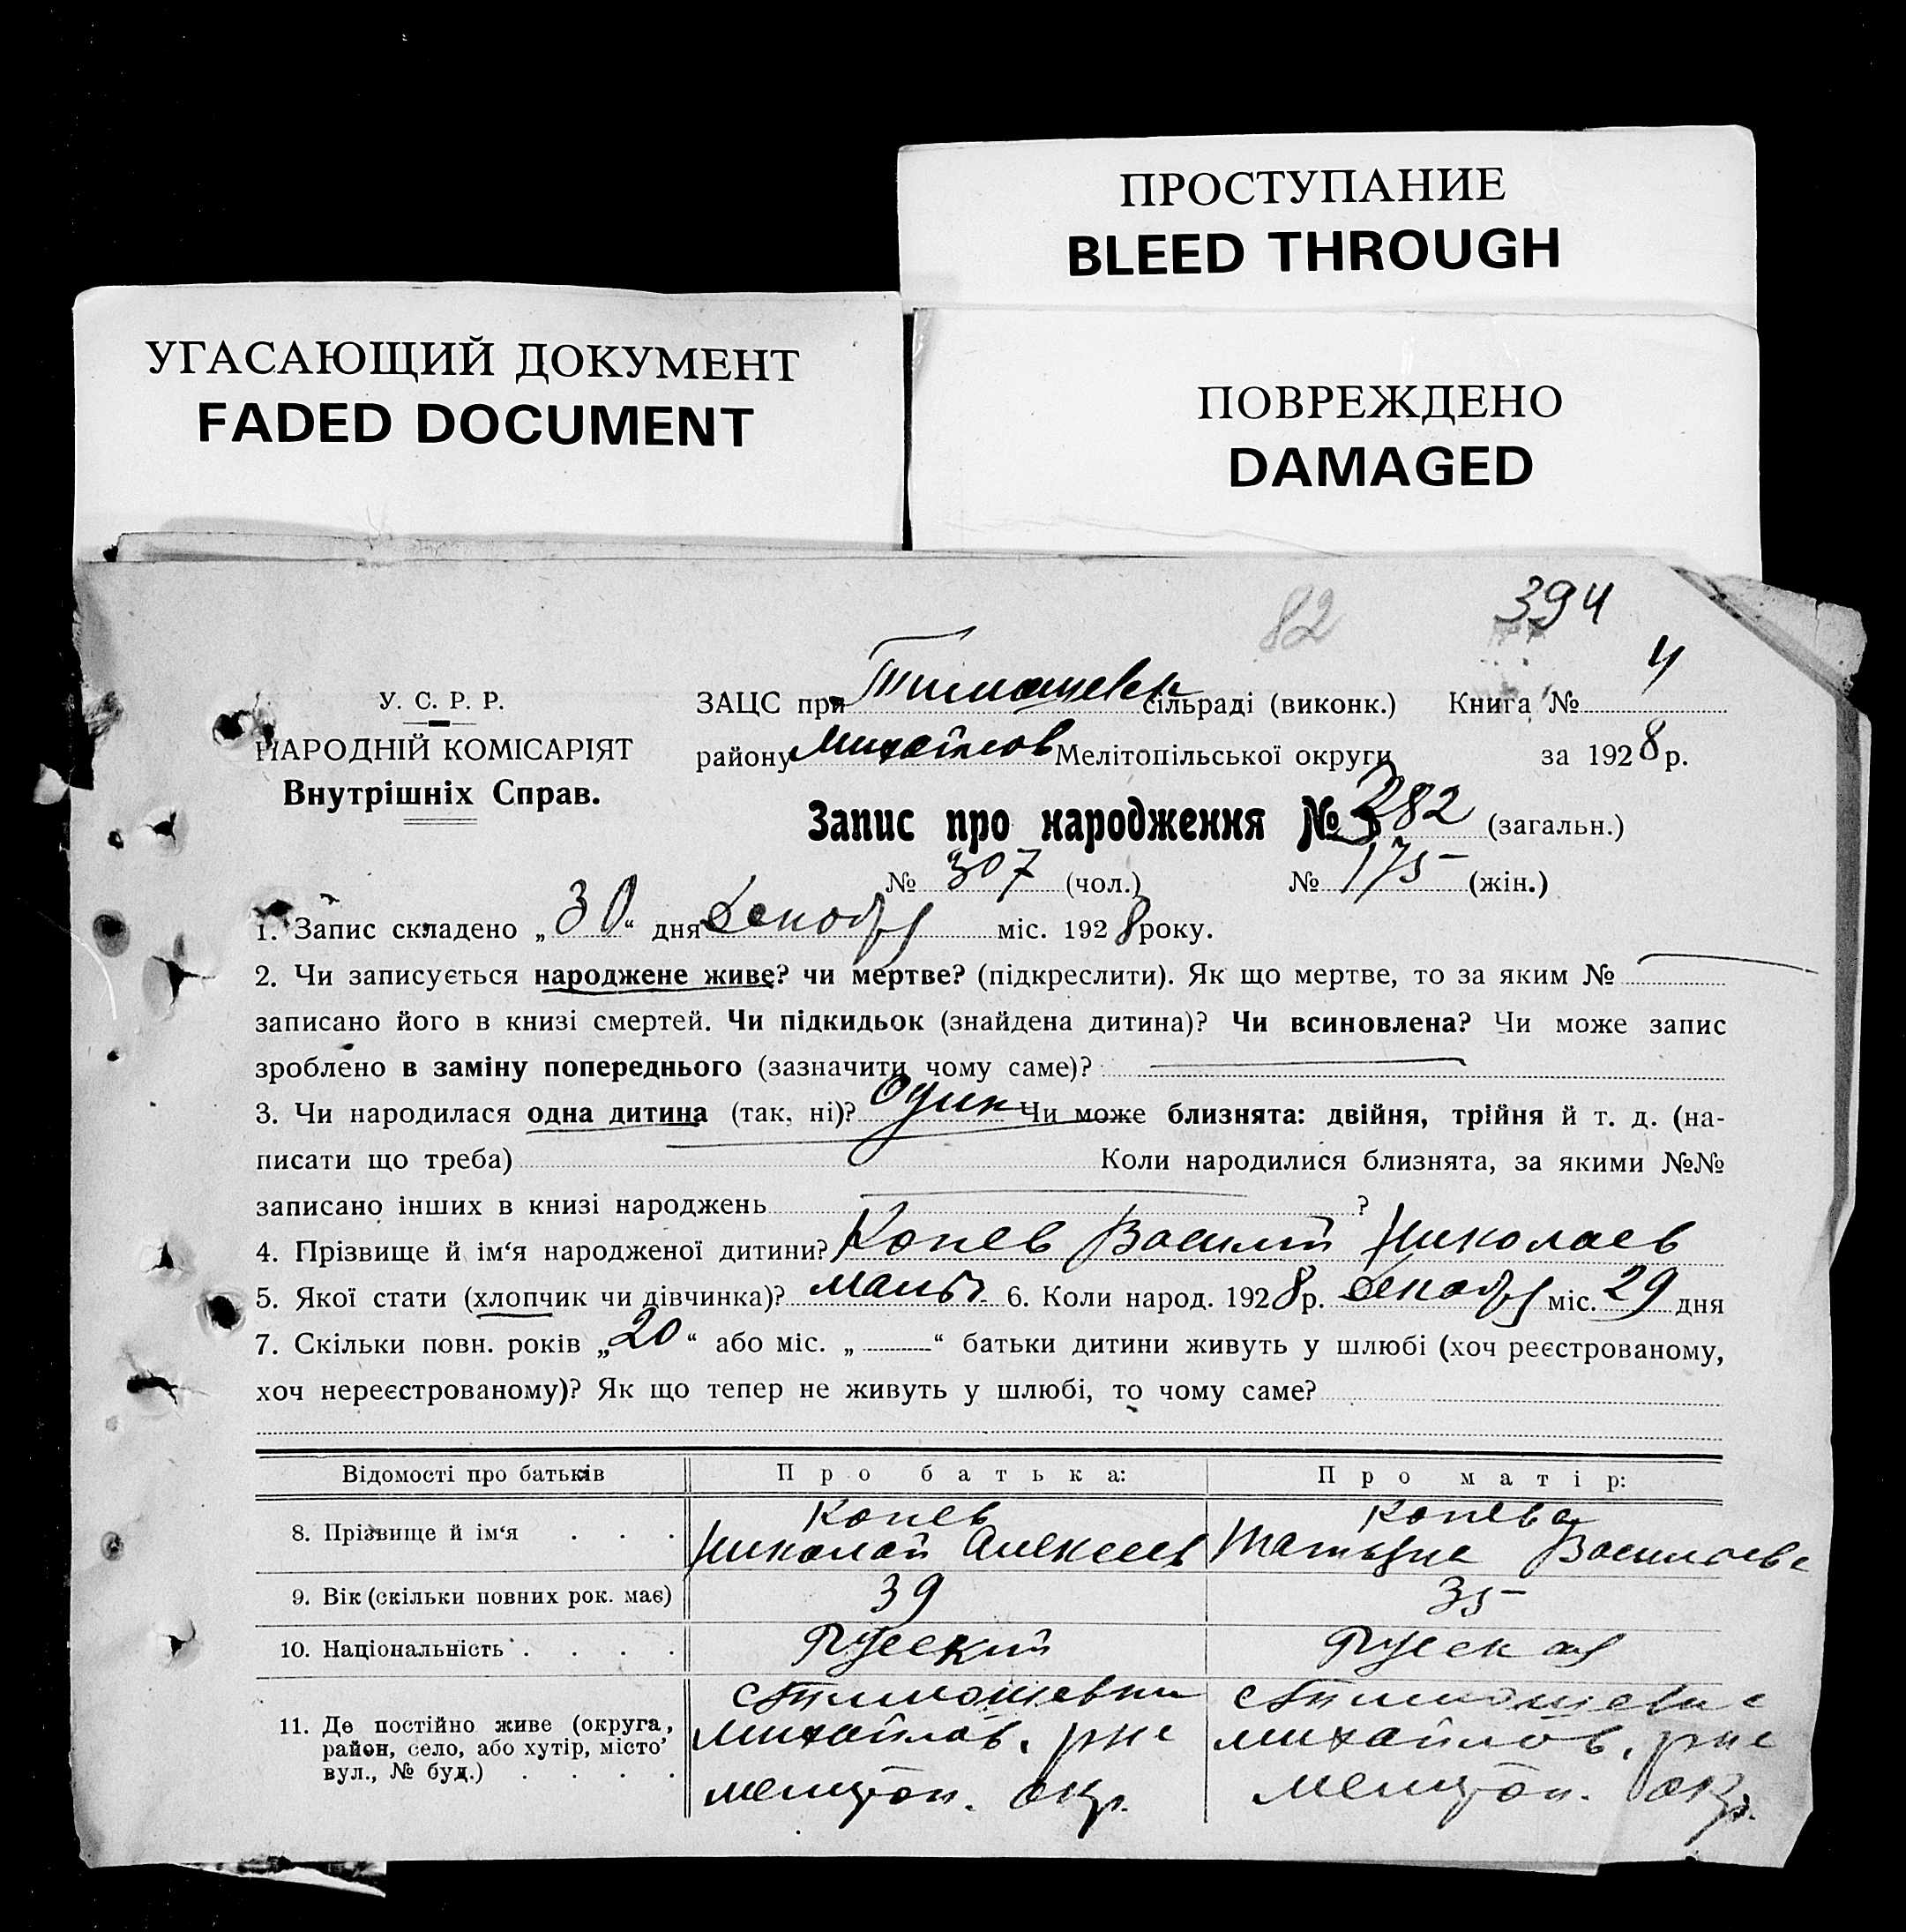 ПРОСТУПАНИЕ
BLEED THROUGH
УГАСАЮЩИЙ ДОКУМЕНТ
FADED DOCUMENT
ПОВРЕЖДЕНО
DAMAGED
82
394
У. С. Р. Р.
НАРОДНІЙ КОМІСАРІЯТ
Внутрішніх Справ.
ЗАЦС при Тимошевск сільраді (виконк.) Книга № 4
району Михайлов Мелітопільської округи за 1928 р.
Запис про народження № 382 (загальн.)
№ 307 (чол.) № 175 (жін.)
1. Запис складено „30“ дня декабря міс. 1928 року.
2. Чи записується народжене живе? чи мертве? (підкреслити). Як що мертве, то за яким №
записано його в книзі смертей. Чи підкидьок (знайдена дитина)? Чи всиновлена? Чи може запис
зроблено в заміну попереднього (зазначити чому саме)?
3. Чи народилася одна дитина (так, ні)? один Чи може близнята: двійня, трійня й т. д. (на-
писати що треба) Коли народилися близнята, за якими №№
записано інших в книзі народжень ?
4. Прізвище й ім‘я народженої дитини? Копев Василий Николаев
5. Якої стати (хлопчик чи дівчинка)? мальч. 6. Коли народ. 1928 р. декабря міс. 29 дня
7. Скільки повн. років „20“ або міс. „ “ батьки дитини живуть у шлюбі (хоч реєстрованому,
хоч нереєстрованому)? Як що тепер не живуть у шлюбі, то чому саме?
Відомості про батьків Про батька: Про матір:
8. Прізвище й ім‘я . . . Копев Николай Алексеев Копева Татьяна Васильева
9. Вік (скільки повних рок. має) 39 35
10. Національність . . . . Русский Русская
11. Де постійно живе (округа,
район, село, або хутір, місто
вул., № буд.) . . . .
с Тимошевки
Михайлов. рне
мелитоп. окр.
с Тимошевке
михайлов. рне
мелитоп. окр.